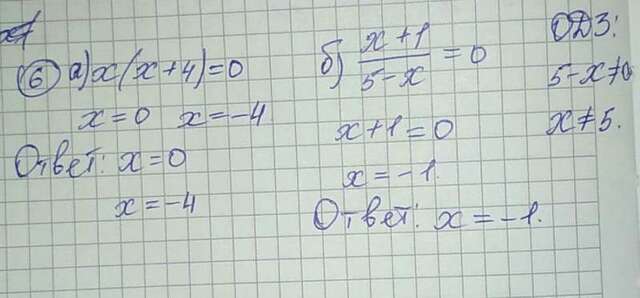 ⑥ а) x(x+4)=0
x=0 x=-4
Ответ: x=0
x=-4
б) (x+1)/(5-x) = 0
x+1=0
x=-1.
Ответ: x=-1.
ОДЗ:
5-x≠0
x≠5.